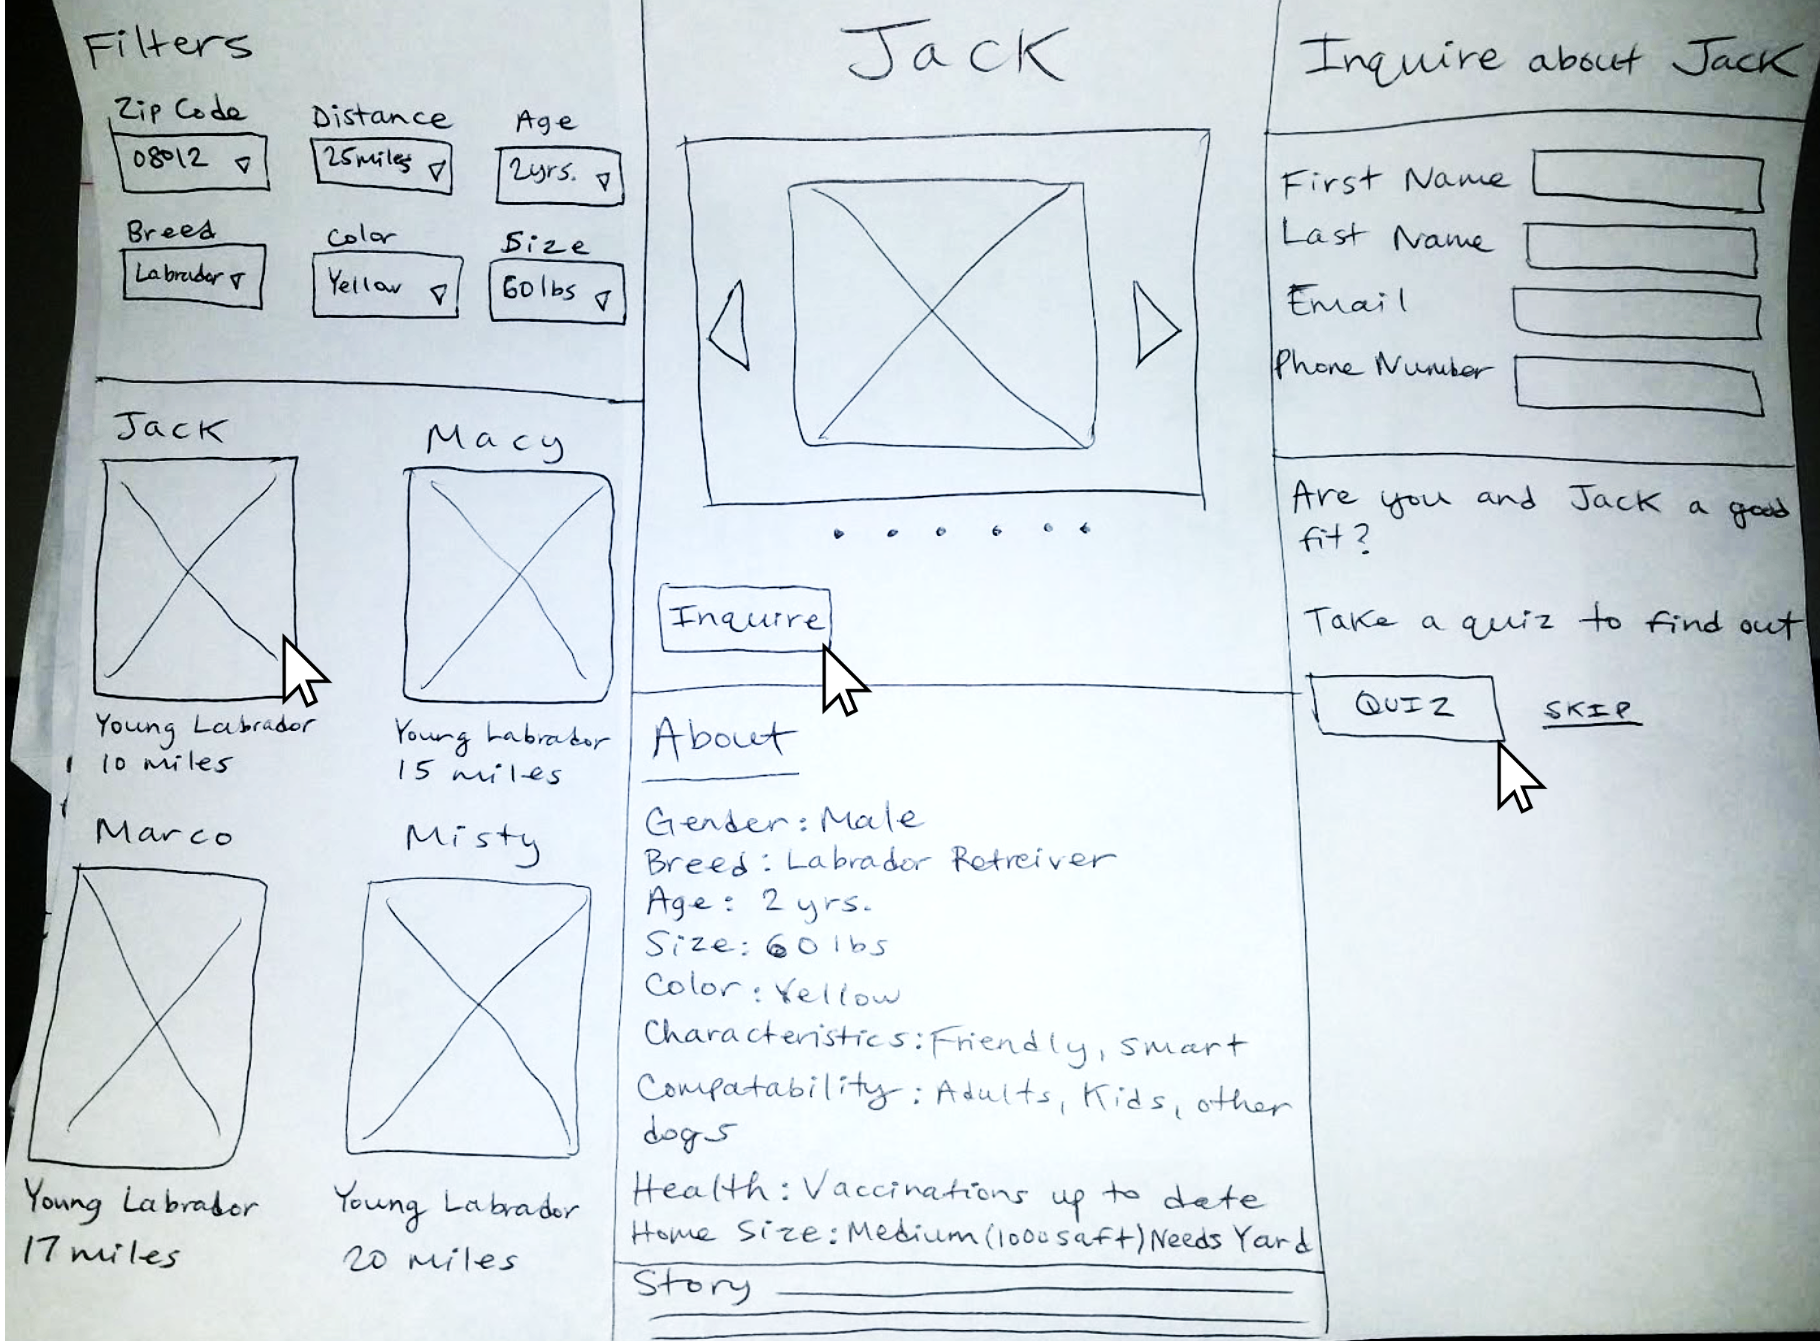 Filters
Zip Code Distance Age
08012 25miles 2yrs.
Breed Color Size
Labrador Yellow 60lbs
Jack Macy
Young Labrador Young Labrador
10 miles 15 miles
Marco Misty
Young Labrador Young Labrador
17 miles 20 miles
Jack
Inquire
About
Gender: Male
Breed: Labrador Retreiver
Age: 2 yrs.
Size: 60 lbs
Color: Yellow
Characteristics: Friendly, smart
Compatability: Adults, Kids, other
dogs
Health: Vaccinations up to date
Home Size: Medium (1000 sqft) Needs Yard
Story
Inquire about Jack
First Name
Last Name
Email
Phone Number
Are you and Jack a good
fit?
Take a quiz to find out
QUIZ SKIP